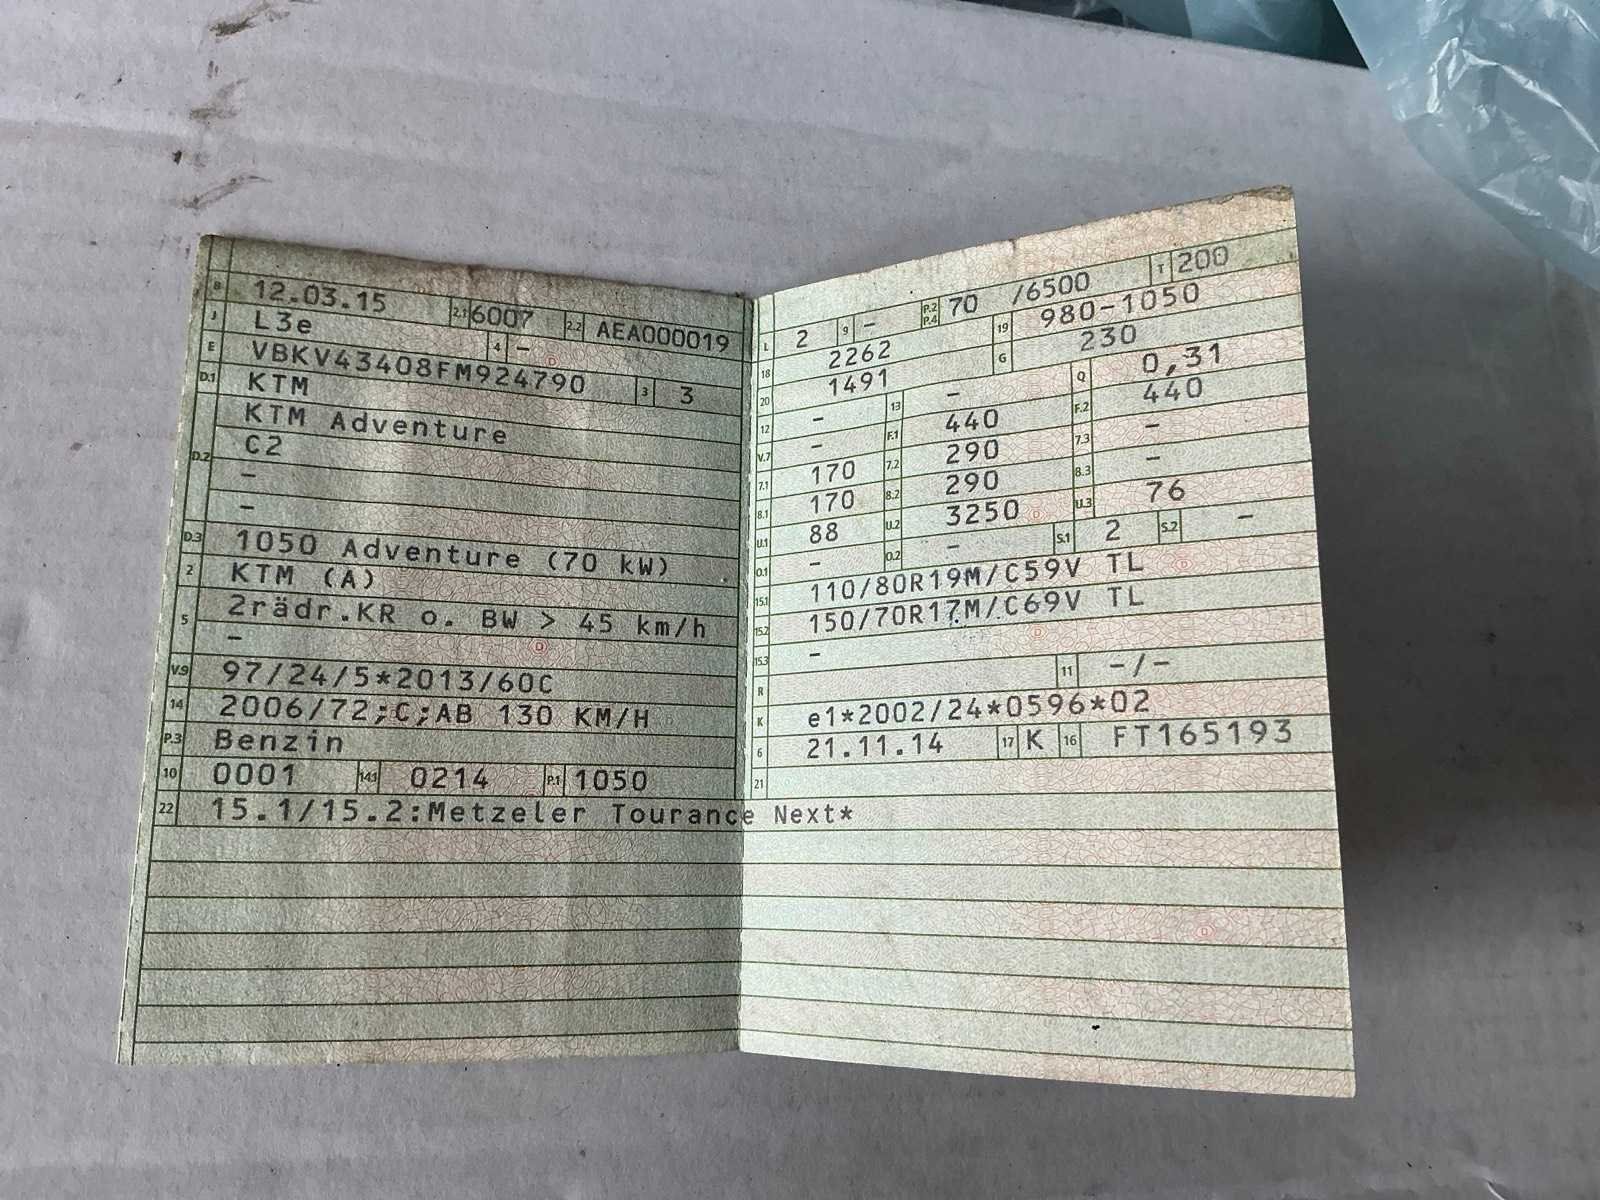 B 12.03.15 2.1 6007 2.2 AEA000019
J L3e 4 -
E VBKV43408FM924790 3 3
D.1 KTM
D.2 KTM Adventure
C2
-
-
D.3 1050 Adventure (70 kW)
2 KTM (A)
5 2rädr.KR o. BW > 45 km/h
-
V.9 97/24/5*2013/60C
14 2006/72;C;AB 130 KM/H
P.3 Benzin
10 0001 14.1 0214 P.1 1050
L 2 9 - P.2 P.4 70 /6500 T 200
18 2262 19 980-1050
20 1491 G 230
12 - 13 - Q 0,31
V.7 - F.1 440 F.2 440
7.1 170 7.2 290 7.3 -
8.1 170 8.2 290 8.3 -
U.1 88 U.2 3250 U.3 76
O.1 - O.2 - S.1 2 S.2 -
15.1 110/80R19M/C59V TL
15.2 150/70R17M/C69V TL
15.3 -
R 11 -/-
K e1*2002/24*0596*02
6 21.11.14 17 K 16 FT165193
21
22 15.1/15.2:Metzeler Tourance Next*